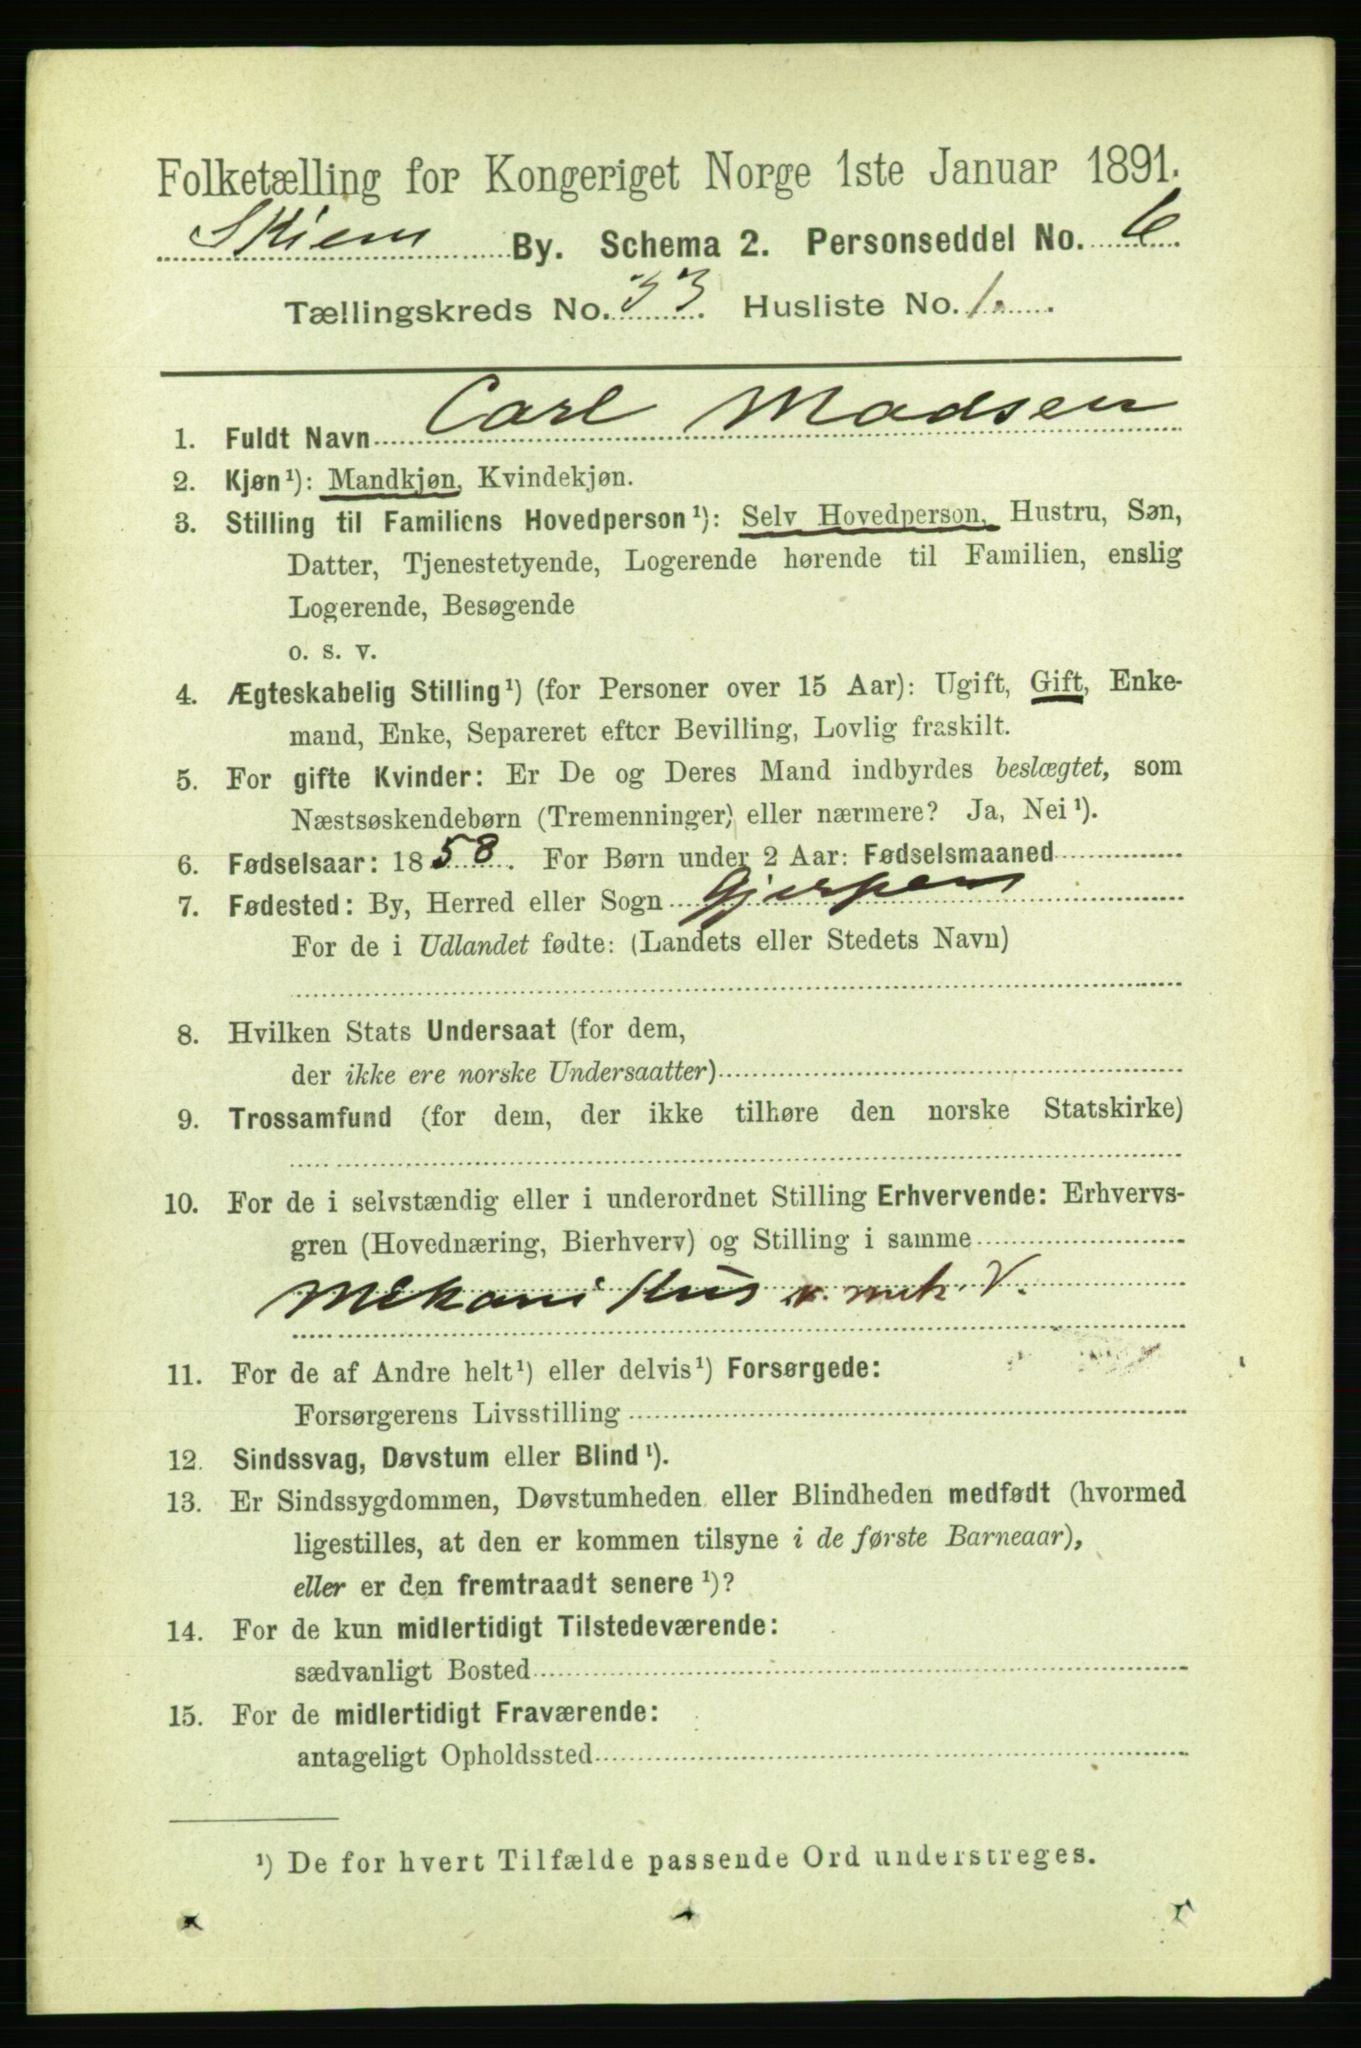 Folketælling for Kongeriget Norge 1ste Januar 1891.
Skien By. Schema 2. Personseddel No. 6
Tællingskreds No. 33. Husliste No. 1.
1. Fuldt Navn Carl Madsen
2. Kjøn¹): Mandkjøn, Kvindekjøn.
3. Stilling til Familiens Hovedperson¹): Selv Hovedperson, Hustru, Søn,
Datter, Tjenestetyende, Logerende hørende til Familien, enslig
Logerende, Besøgende
o. s. v.
4. Ægteskabelig Stilling¹) (for Personer over 15 Aar): Ugift, Gift, Enke-
mand, Enke, Separeret efter Bevilling, Lovlig fraskilt.
5. For gifte Kvinder: Er De og Deres Mand indbyrdes beslægtet, som
Næstsøskendebørn (Tremenninger) eller nærmere? Ja, Nei¹).
6. Fødselsaar: 1858. For Børn under 2 Aar: Fødselsmaaned
7. Fødested: By, Herred eller Sogn Gjerpen
For de i Udlandet fødte: (Landets eller Stedets Navn)
8. Hvilken Stats Undersaat (for dem,
der ikke ere norske Undersaatter)
9. Trossamfund (for dem, der ikke tilhøre den norske Statskirke)
10. For de i selvstændig eller i underordnet Stilling Erhvervende: Erhvervs-
gren (Hovednæring, Bierhverv) og Stilling i samme
Mekanikus v. mek. V.
11. For de af Andre helt¹) eller delvis¹) Forsørgede:
Forsørgerens Livsstilling
12. Sindssvag, Døvstum eller Blind¹).
13. Er Sindssygdommen, Døvstumheden eller Blindheden medfødt (hvormed
ligestilles, at den er kommen tilsyne i de første Barneaar),
eller er den fremtraadt senere¹)?
14. For de kun midlertidigt Tilstedeværende:
sædvanligt Bosted
15. For de midlertidigt Fraværende:
antageligt Opholdssted
¹) De for hvert Tilfælde passende Ord understreges.